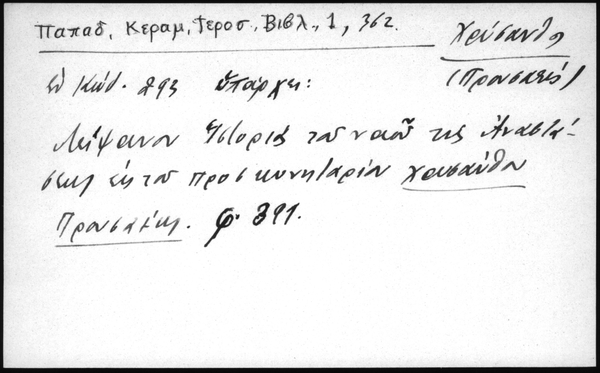 Παπαδ. Κεραμ, Ἱεροσ., Βιβλ., 1, 362.
Χρύσανθος
(Προυσαεύς)
ἐν Κώδ. 293 ὑπάρχει:
Λείψανον Ἱστορίας τοῦ ναοῦ τῆς Ἀναστά-
σεως ἐκ τοῦ προσκυνηταρίου Χρυσάνθου
Προυσαέως. φ. 391.